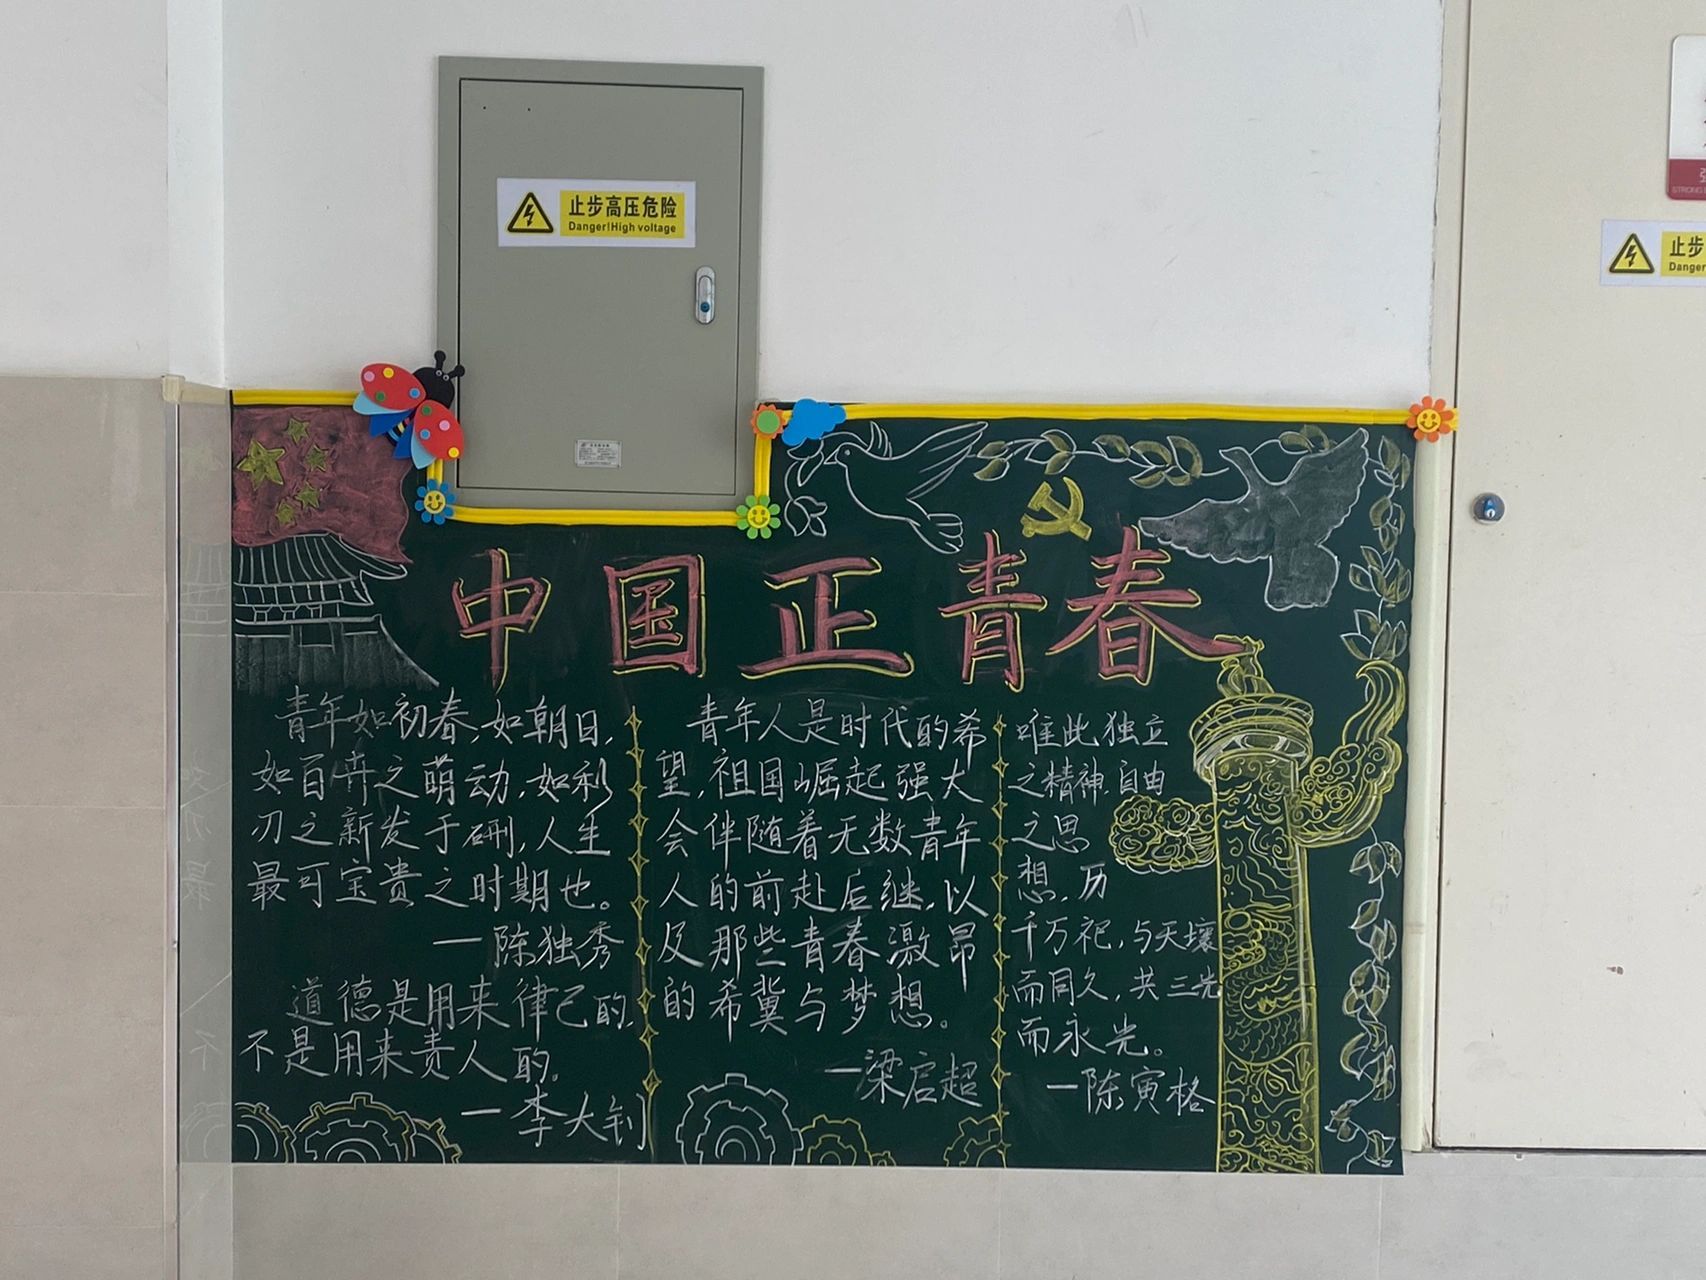 止步高压危险
Danger!High voltage
止步
Danger
中国正青春
青年如初春,如朝日,
如百卉之萌动,如利
刃之新发于硎,人生
最可宝贵之时期也。
—陈独秀
道德是用来律己的,
不是用来责人的。
—李大钊
青年人是时代的希
望,祖国崛起强大
会伴随着无数青年
人的前赴后继,以
及那些青春激昂
的希冀与梦想。
—梁启超
唯此独立
之精神,自由
之思
想,历
千万祀,与天壤
而同久,共三光
而永光。
—陈寅格